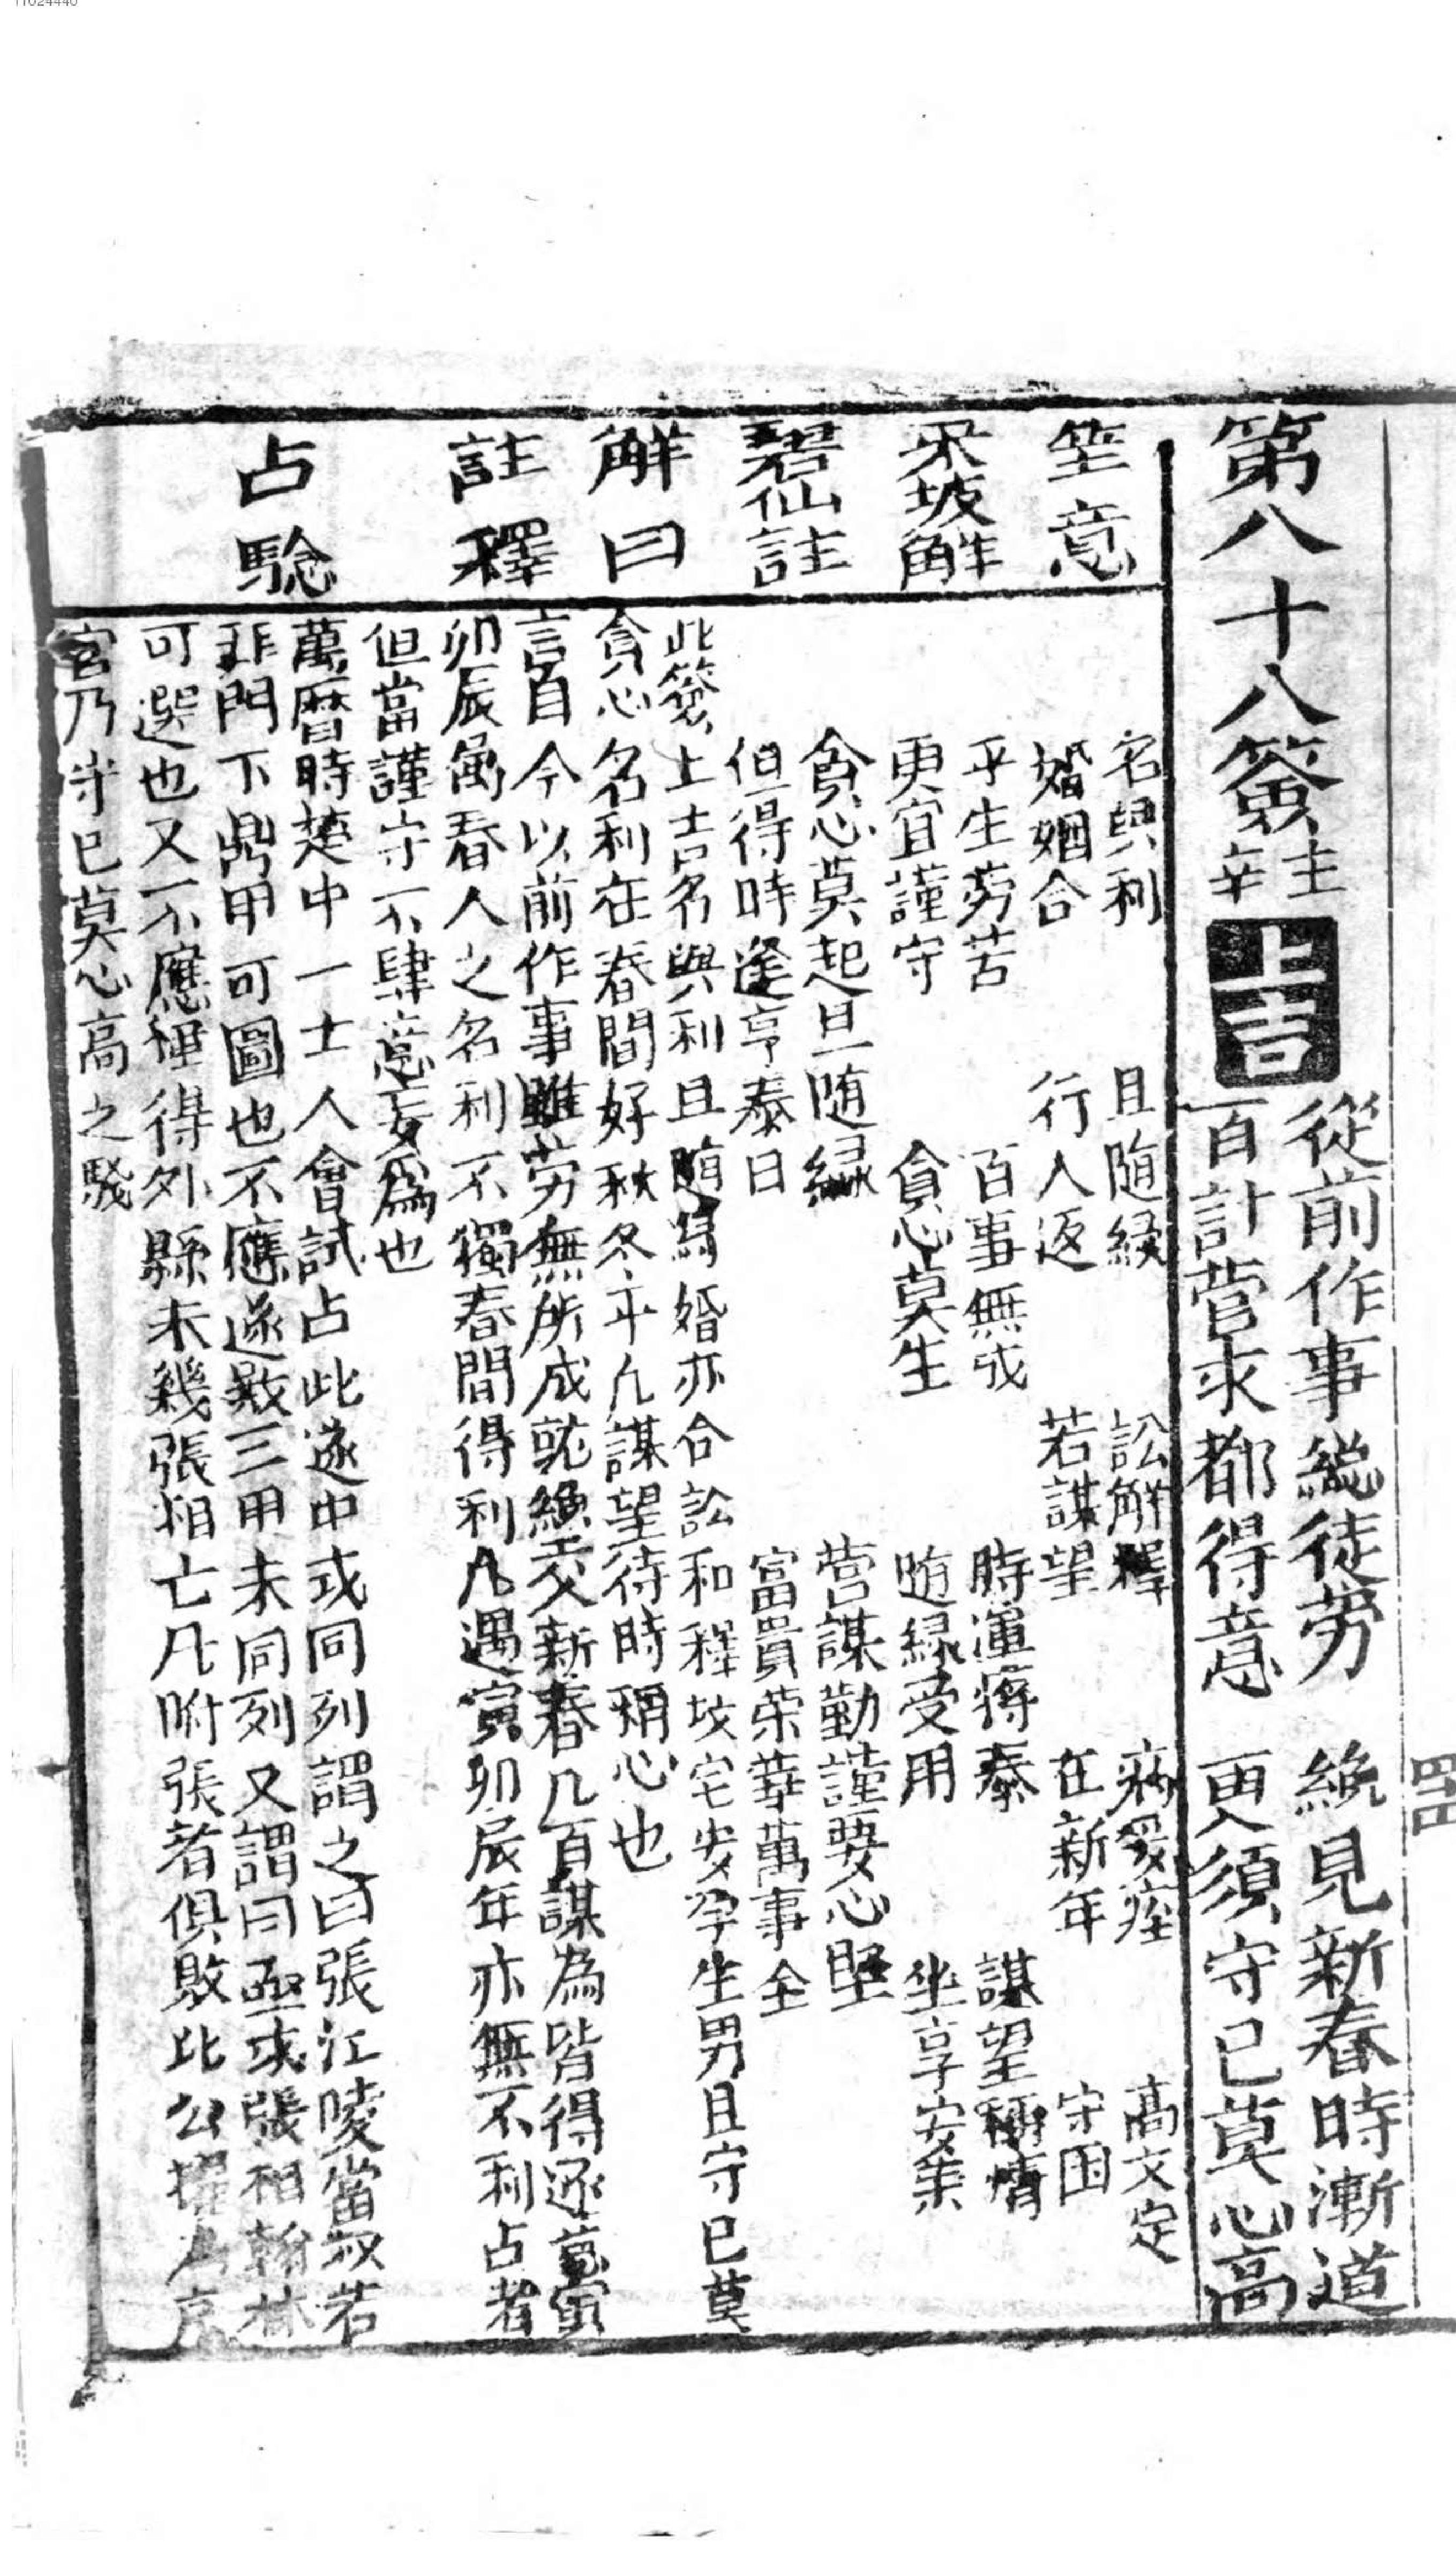 11024440
第八十八簽 壬辛 上吉
從前作事總徒勞 纔見新春時漸遭
百計營求都得意 更須守己莫心高
四四
圣意
名與利 且随緣 訟解釋 病獲痊 髙文定
婚姻合 行人返 若謀望 在新年 守困
東坡解
平生劳苦 百事無成 時運將泰 謀望稱情
更宜謹守 貪心莫生 随緣受用 坐享安榮
碧仙註
貪心莫起且随緣 营謀勤謹要心堅
但得時逢亨泰日 富貴荣華萬事全
解曰
此簽上吉名與利且随緣婚亦合訟和釋坟宅安孕生男且守己莫
貪心名利在春間好秋冬平凡謀望待時稱心也
註釋
言自今以前作事雖劳無所成就纔交新春凡百謀為皆得逐意寅
卯辰属春人之名利不獨春間得利凡遇寅卯辰年亦無不利占者
但當謹守不肆意妄爲也
占驗
萬曆時楚中一士人會試占此遂中或同列謂之曰張江陵當权若
非門下鼎甲可圖也不應遂殿三甲末同列又謂曰亟求張相翰林
可選也又不應裡得外縣未幾張相亡凡附張者俱敗此公擢為京
官乃守己莫心高之驗